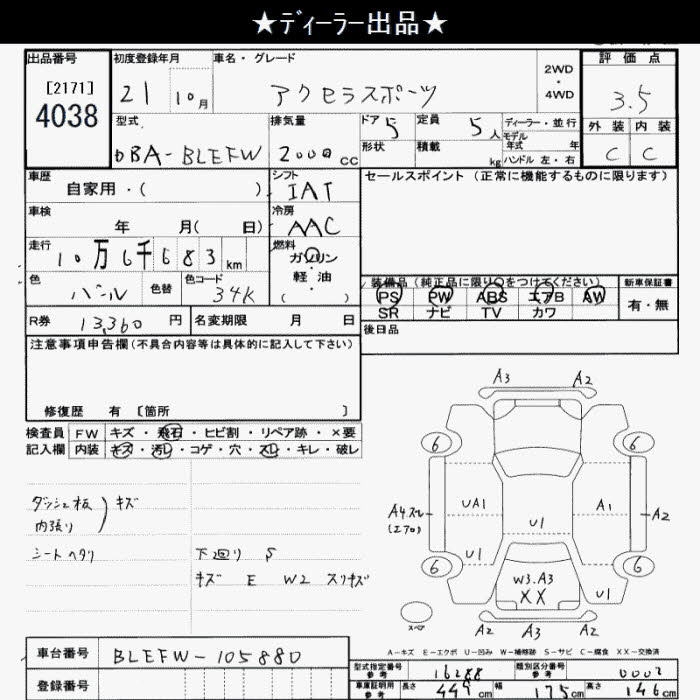 ★ディーラー出品★
出品番号 初度登録年月 車名・グレード 2WD・4WD 評価点
[2171]
4038
21 10月 アクセラスポーツ 3.5
型式 排気量 ドア 5 定員 5人 ディーラー・並行 外装 内装
モデル年式 年
DBA-BLEFW 2000cc 形状 積載 kg ハンドル 左・右 C C
車歴 シフト セールスポイント(正常に機能するものに限ります)
自家用・( ) IAT
車検 冷房
年 月( 日) AAC
走行 燃料
10万6千683km ガソリン・軽油
色 色替 色コード ( )
パール 34K
装備品(純正品に限り○をつけてください) 新車保証書
PS PW ABS エアB AW 有・無
SR ナビ TV カワ
R券 13,360円 名変期限 月 日 後日品
注意事項申告欄(不具合内容等は具体的に記入して下さい)
修復歴 有 [箇所 ]
検査員 FW キズ・飛石・ヒビ割・リペア跡・×要
記入欄 内装 キズ・汚レ・コゲ・穴・スレ・キレ・破レ
ダッシュ板 キズ
内張り
シートヘタリ
下回り S
キズ E W2 スリキズ
A3 A2
6 6
A4スレ UA1 A1 A2
(エアロ) U1
U1
6 6
W3.A3 U1
XX
スペア A2 A3 A2
A-キズ E-エクボ U-凹み W-補修跡 S-サビ C-腐食 XX-交換済
車台番号 BLEFW-105880
登録番号
型式指定番号 参考 16288 類別区分番号 参考 0002
車庫証明用 参考 長さ 449cm 幅 175cm 高さ 146cm